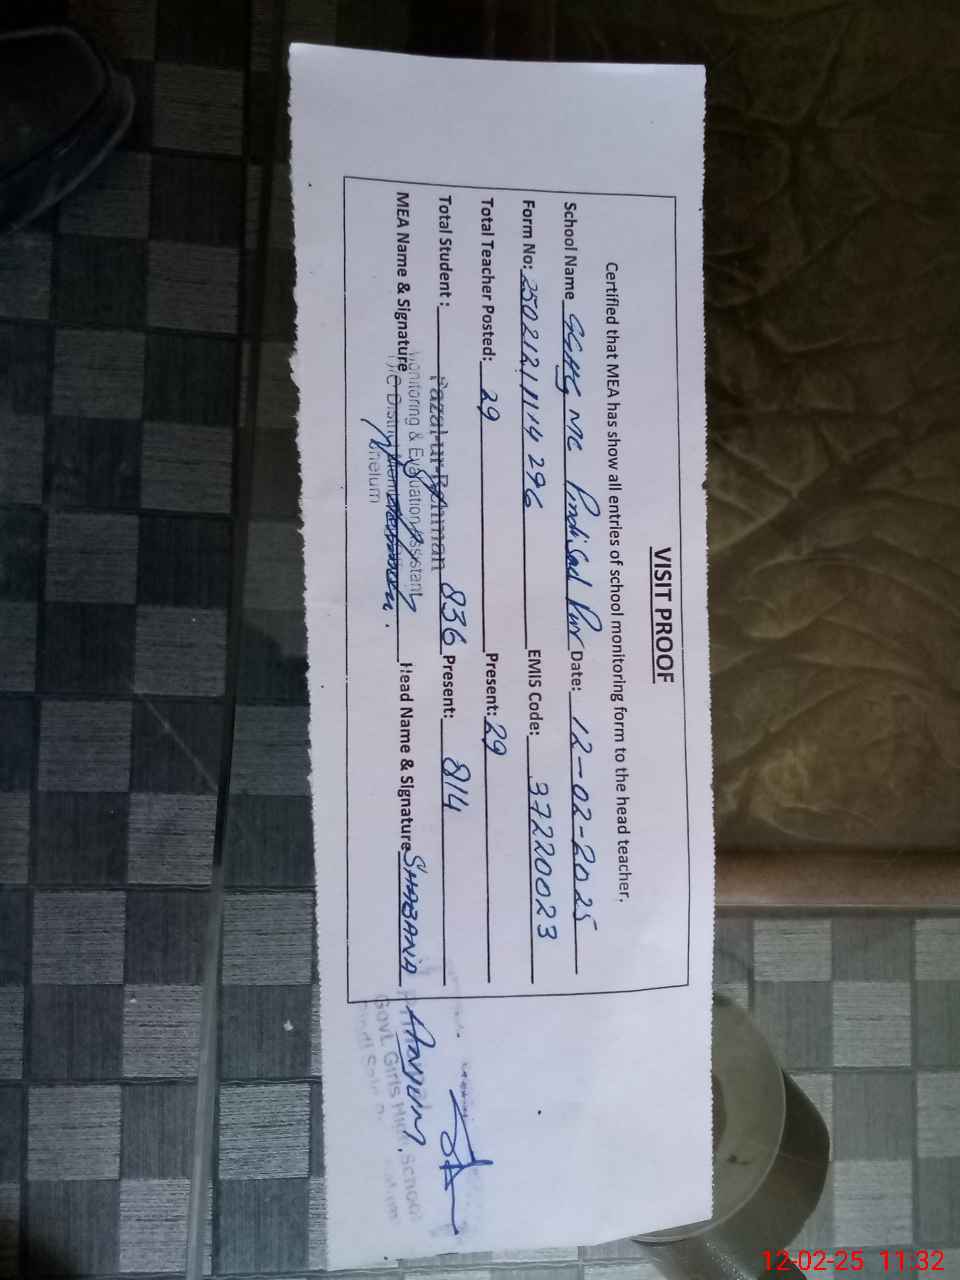 VISIT PROOF
Certified that MEA has show all entries of school monitoring form to the head teacher,
School Name GGHS MC Pindi Said Pur Date: 12-02-2025
Form No: 25021211114296 EMIS Code: 37220023
Total Teacher Posted: 29 Present: 29
Total Student: 836 Present: 814
Fazal-ur-Rehman
MEA Name & Signature Head Name & Signature SHABANA ANJUM.
Monitoring & Evaluation Assistant
Jhelum
Govt. Girls High School
12-02-25 11:32